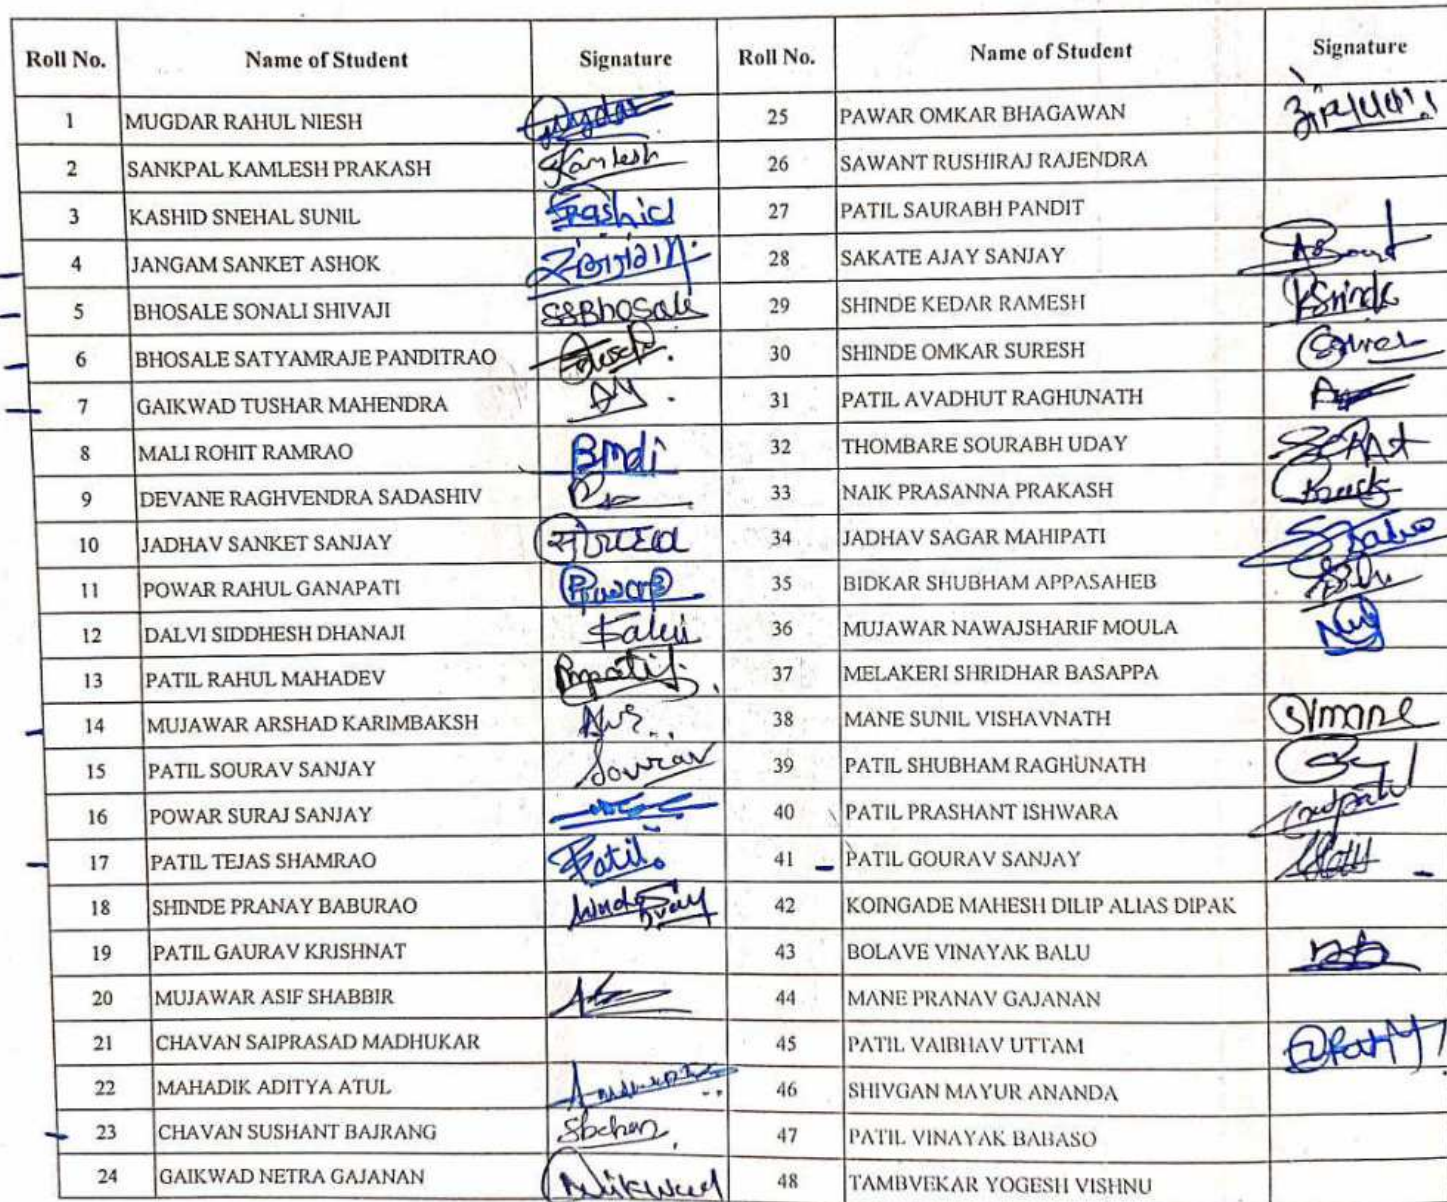 Roll No. Name of Student Signature Roll No. Name of Student Signature
1 MUGDAR RAHUL NIESH Mugdar 25 PAWAR OMKAR BHAGAWAN
2 SANKPAL KAMLESH PRAKASH Kamlesh 26 SAWANT RUSHIRAJ RAJENDRA
3 KASHID SNEHAL SUNIL Kashid 27 PATIL SAURABH PANDIT
4 JANGAM SANKET ASHOK 28 SAKATE AJAY SANJAY
5 BHOSALE SONALI SHIVAJI SSBhosale 29 SHINDE KEDAR RAMESH KShinde
6 BHOSALE SATYAMRAJE PANDITRAO 30 SHINDE OMKAR SURESH
7 GAIKWAD TUSHAR MAHENDRA 31 PATIL AVADHUT RAGHUNATH
8 MALI ROHIT RAMRAO 32 THOMBARE SOURABH UDAY
9 DEVANE RAGHVENDRA SADASHIV 33 NAIK PRASANNA PRAKASH
10 JADHAV SANKET SANJAY 34 JADHAV SAGAR MAHIPATI
11 POWAR RAHUL GANAPATI 35 BIDKAR SHUBHAM APPASAHEB
12 DALVI SIDDHESH DHANAJI 36 MUJAWAR NAWAJSHARIF MOULA
13 PATIL RAHUL MAHADEV Rmpatil 37 MELAKERI SHRIDHAR BASAPPA
14 MUJAWAR ARSHAD KARIMBAKSH 38 MANE SUNIL VISHAVNATH SVmane
15 PATIL SOURAV SANJAY Sourav 39 PATIL SHUBHAM RAGHUNATH
16 POWAR SURAJ SANJAY 40 PATIL PRASHANT ISHWARA
17 PATIL TEJAS SHAMRAO Patil 41 PATIL GOURAV SANJAY
18 SHINDE PRANAY BABURAO 42 KOINGADE MAHESH DILIP ALIAS DIPAK
19 PATIL GAURAV KRISHNAT 43 BOLAVE VINAYAK BALU
20 MUJAWAR ASIF SHABBIR 44 MANE PRANAV GAJANAN
21 CHAVAN SAIPRASAD MADHUKAR 45 PATIL VAIBHAV UTTAM
22 MAHADIK ADITYA ATUL 46 SHIVGAN MAYUR ANANDA
23 CHAVAN SUSHANT BAJRANG 47 PATIL VINAYAK BABASO
24 GAIKWAD NETRA GAJANAN 48 TAMBVEKAR YOGESH VISHNU